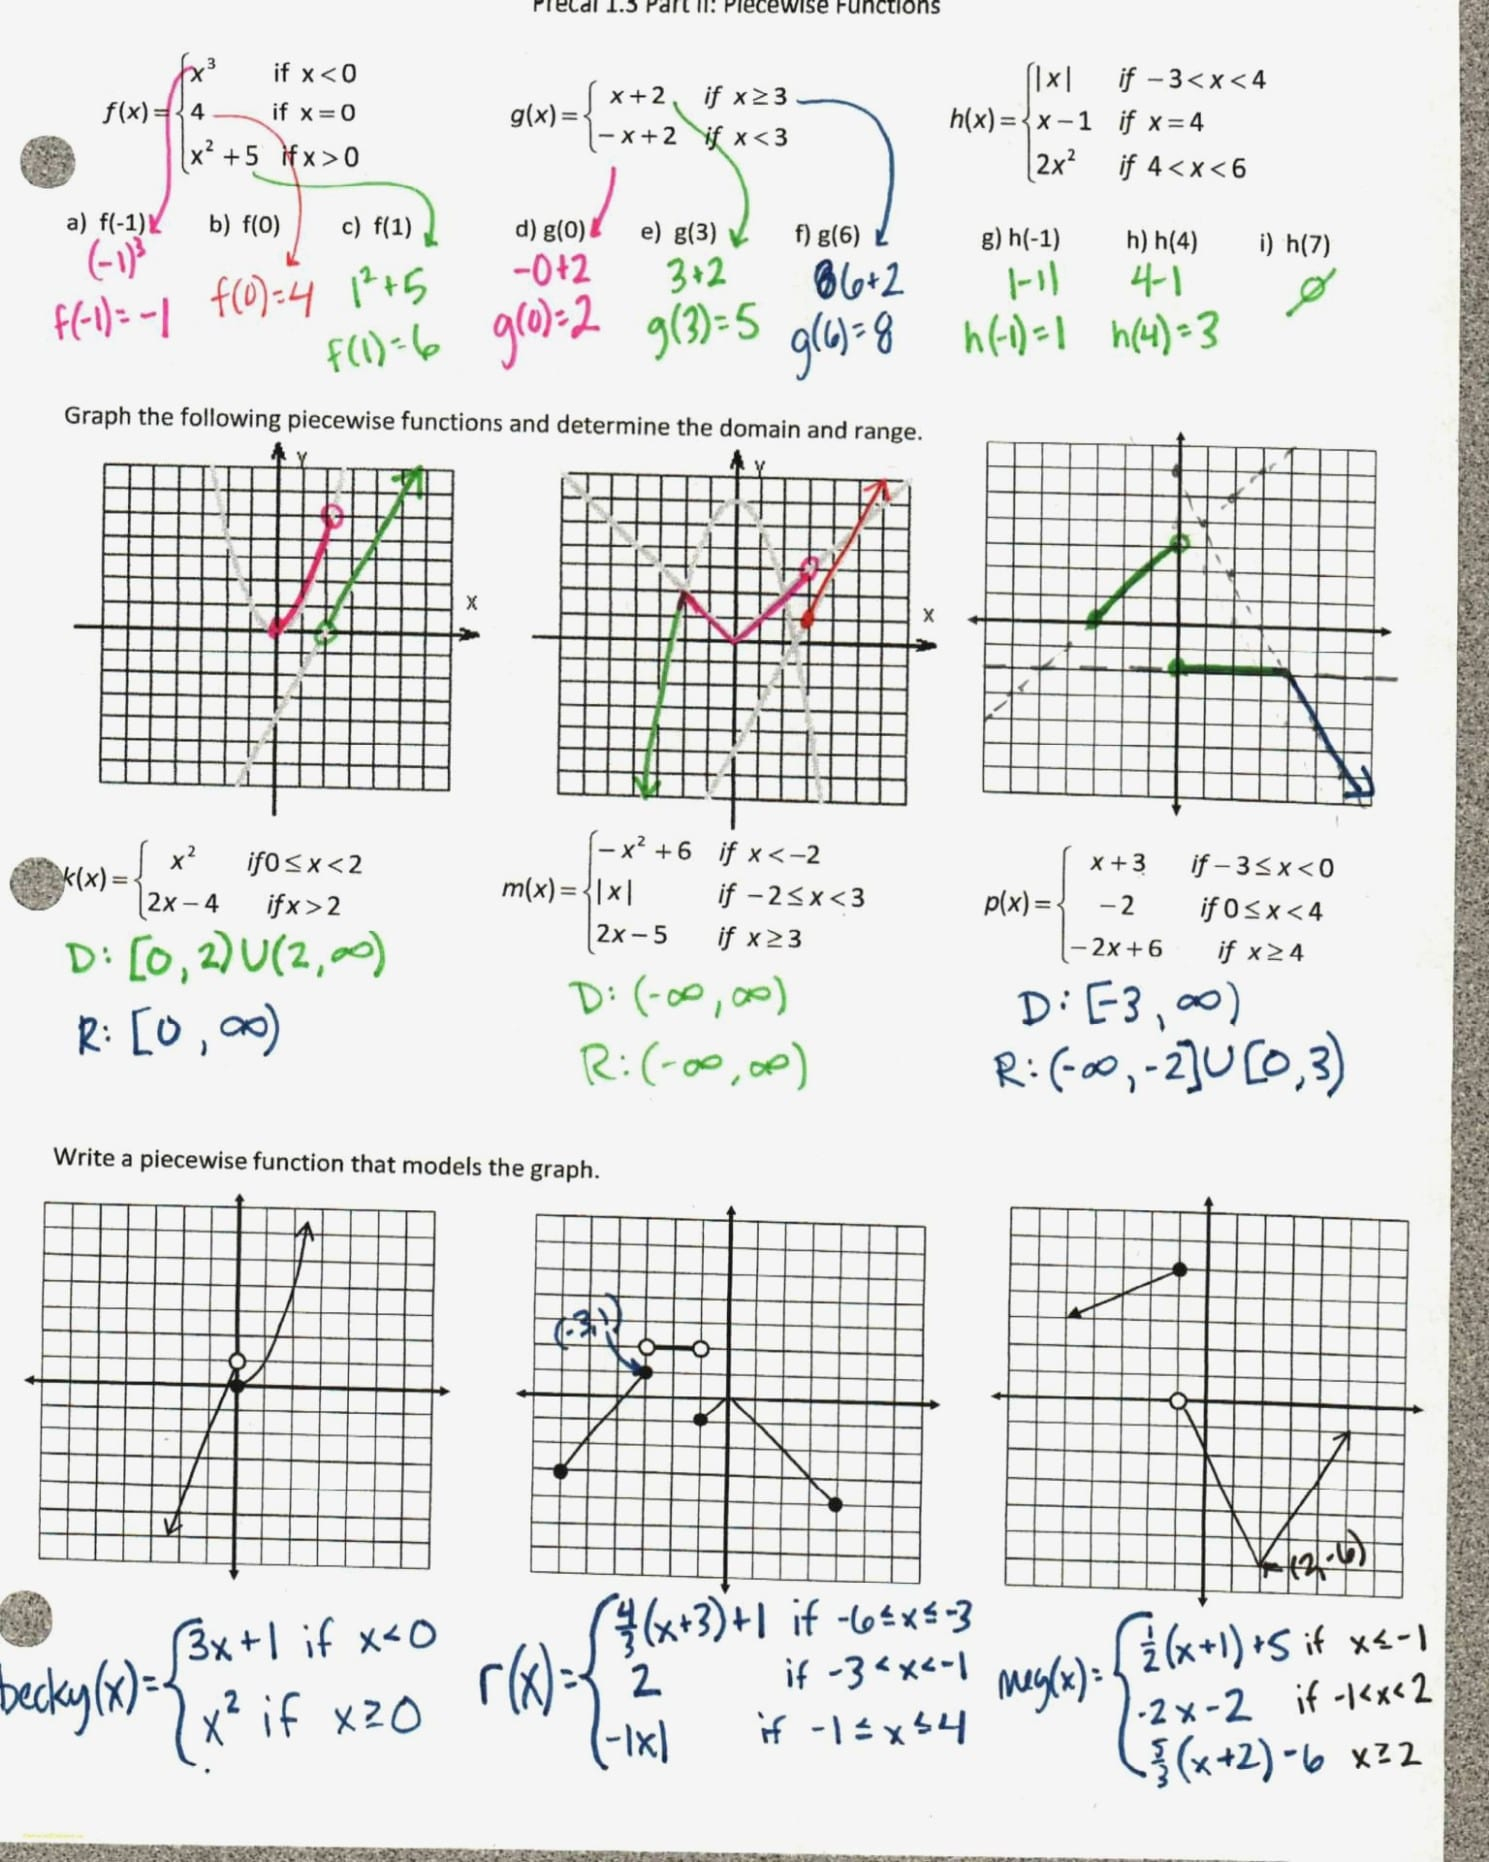 Precal 1.3 Part II: Piecewise Functions
f(x) = { x³ if x < 0
4 if x = 0
x² + 5 if x > 0
g(x) = { x + 2 if x ≥ 3
− x + 2 if x < 3
h(x) = { |x| if − 3 < x < 4
x − 1 if x = 4
2x² if 4 < x < 6
a) f(-1) b) f(0) c) f(1) d) g(0) e) g(3) f) g(6) g) h(-1) h) h(4) i) h(7)
(-1)³
f(-1) = -1
f(0) = 4
1² + 5
f(1) = 6
-0+2
g(0) = 2
3+2
g(3) = 5
6+2
g(6) = 8
|-1|
h(-1) = 1
4-1
h(4) = 3
∅
Graph the following piecewise functions and determine the domain and range.
y
x
y
x
k(x) = { x² if 0 ≤ x < 2
2x − 4 if x > 2
D: [0, 2) U (2, ∞)
R: [0, ∞)
m(x) = { − x² + 6 if x < −2
|x| if − 2 ≤ x < 3
2x − 5 if x ≥ 3
D: (-∞, ∞)
R: (-∞, ∞)
p(x) = { x + 3 if − 3 ≤ x < 0
− 2 if 0 ≤ x < 4
− 2x + 6 if x ≥ 4
D: [-3, ∞)
R: (-∞, -2] U [0, 3)
Write a piecewise function that models the graph.
(-3, 1)
(2, -6)
becky(x) = { 3x+1 if x < 0
x² if x ≥ 0
r(x) = { 4/3 (x+3) + 1 if -6 ≤ x ≤ -3
2 if -3 < x < -1
-|x| if -1 ≤ x ≤ 4
meg(x) = { 1/2 (x+1) + 5 if x ≤ -1
-2x - 2 if -1 < x < 2
5/3 (x+2) - 6 x ≥ 2